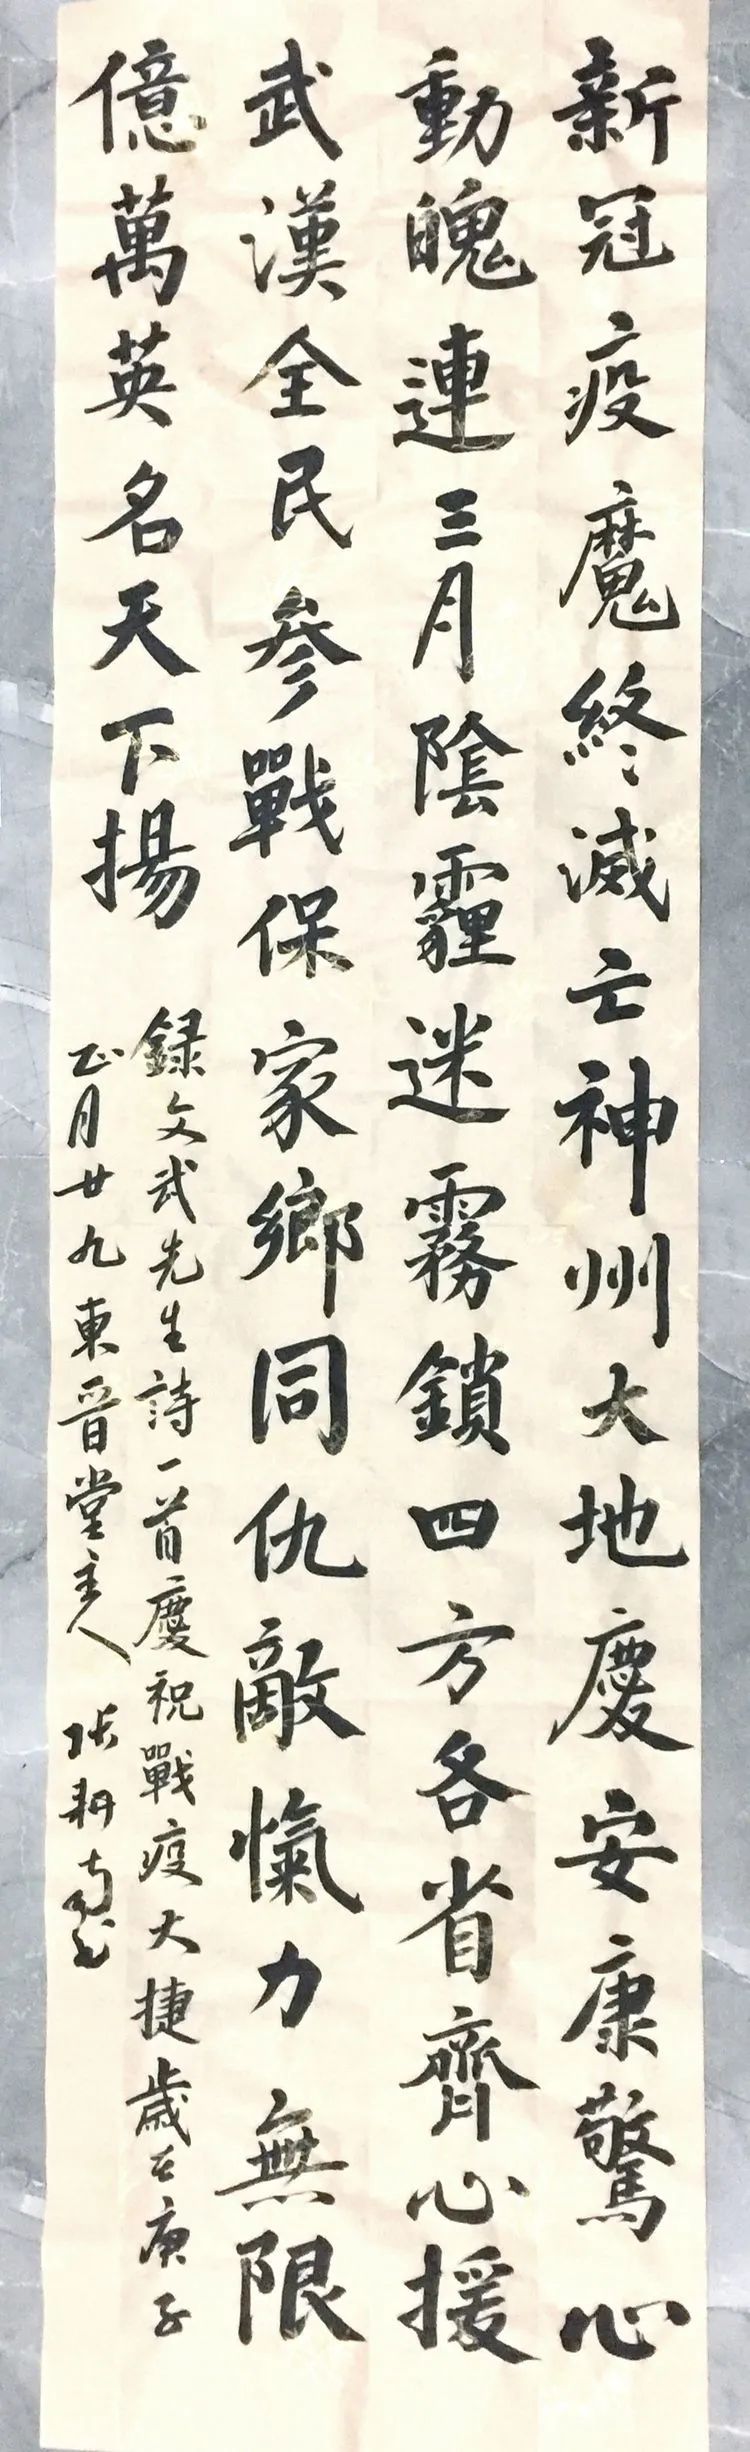 新冠疫魔終滅亡神州大地慶安康驚心
動魄連三月陰霾迷霧鎖四方各省齊心援
武漢全民參戰保家鄉同仇敵愾力無限
億萬英名天下揚
録文武先生詩一首慶祝戰疫大捷歲在庚子
正月廿九東晉堂主人 张耕